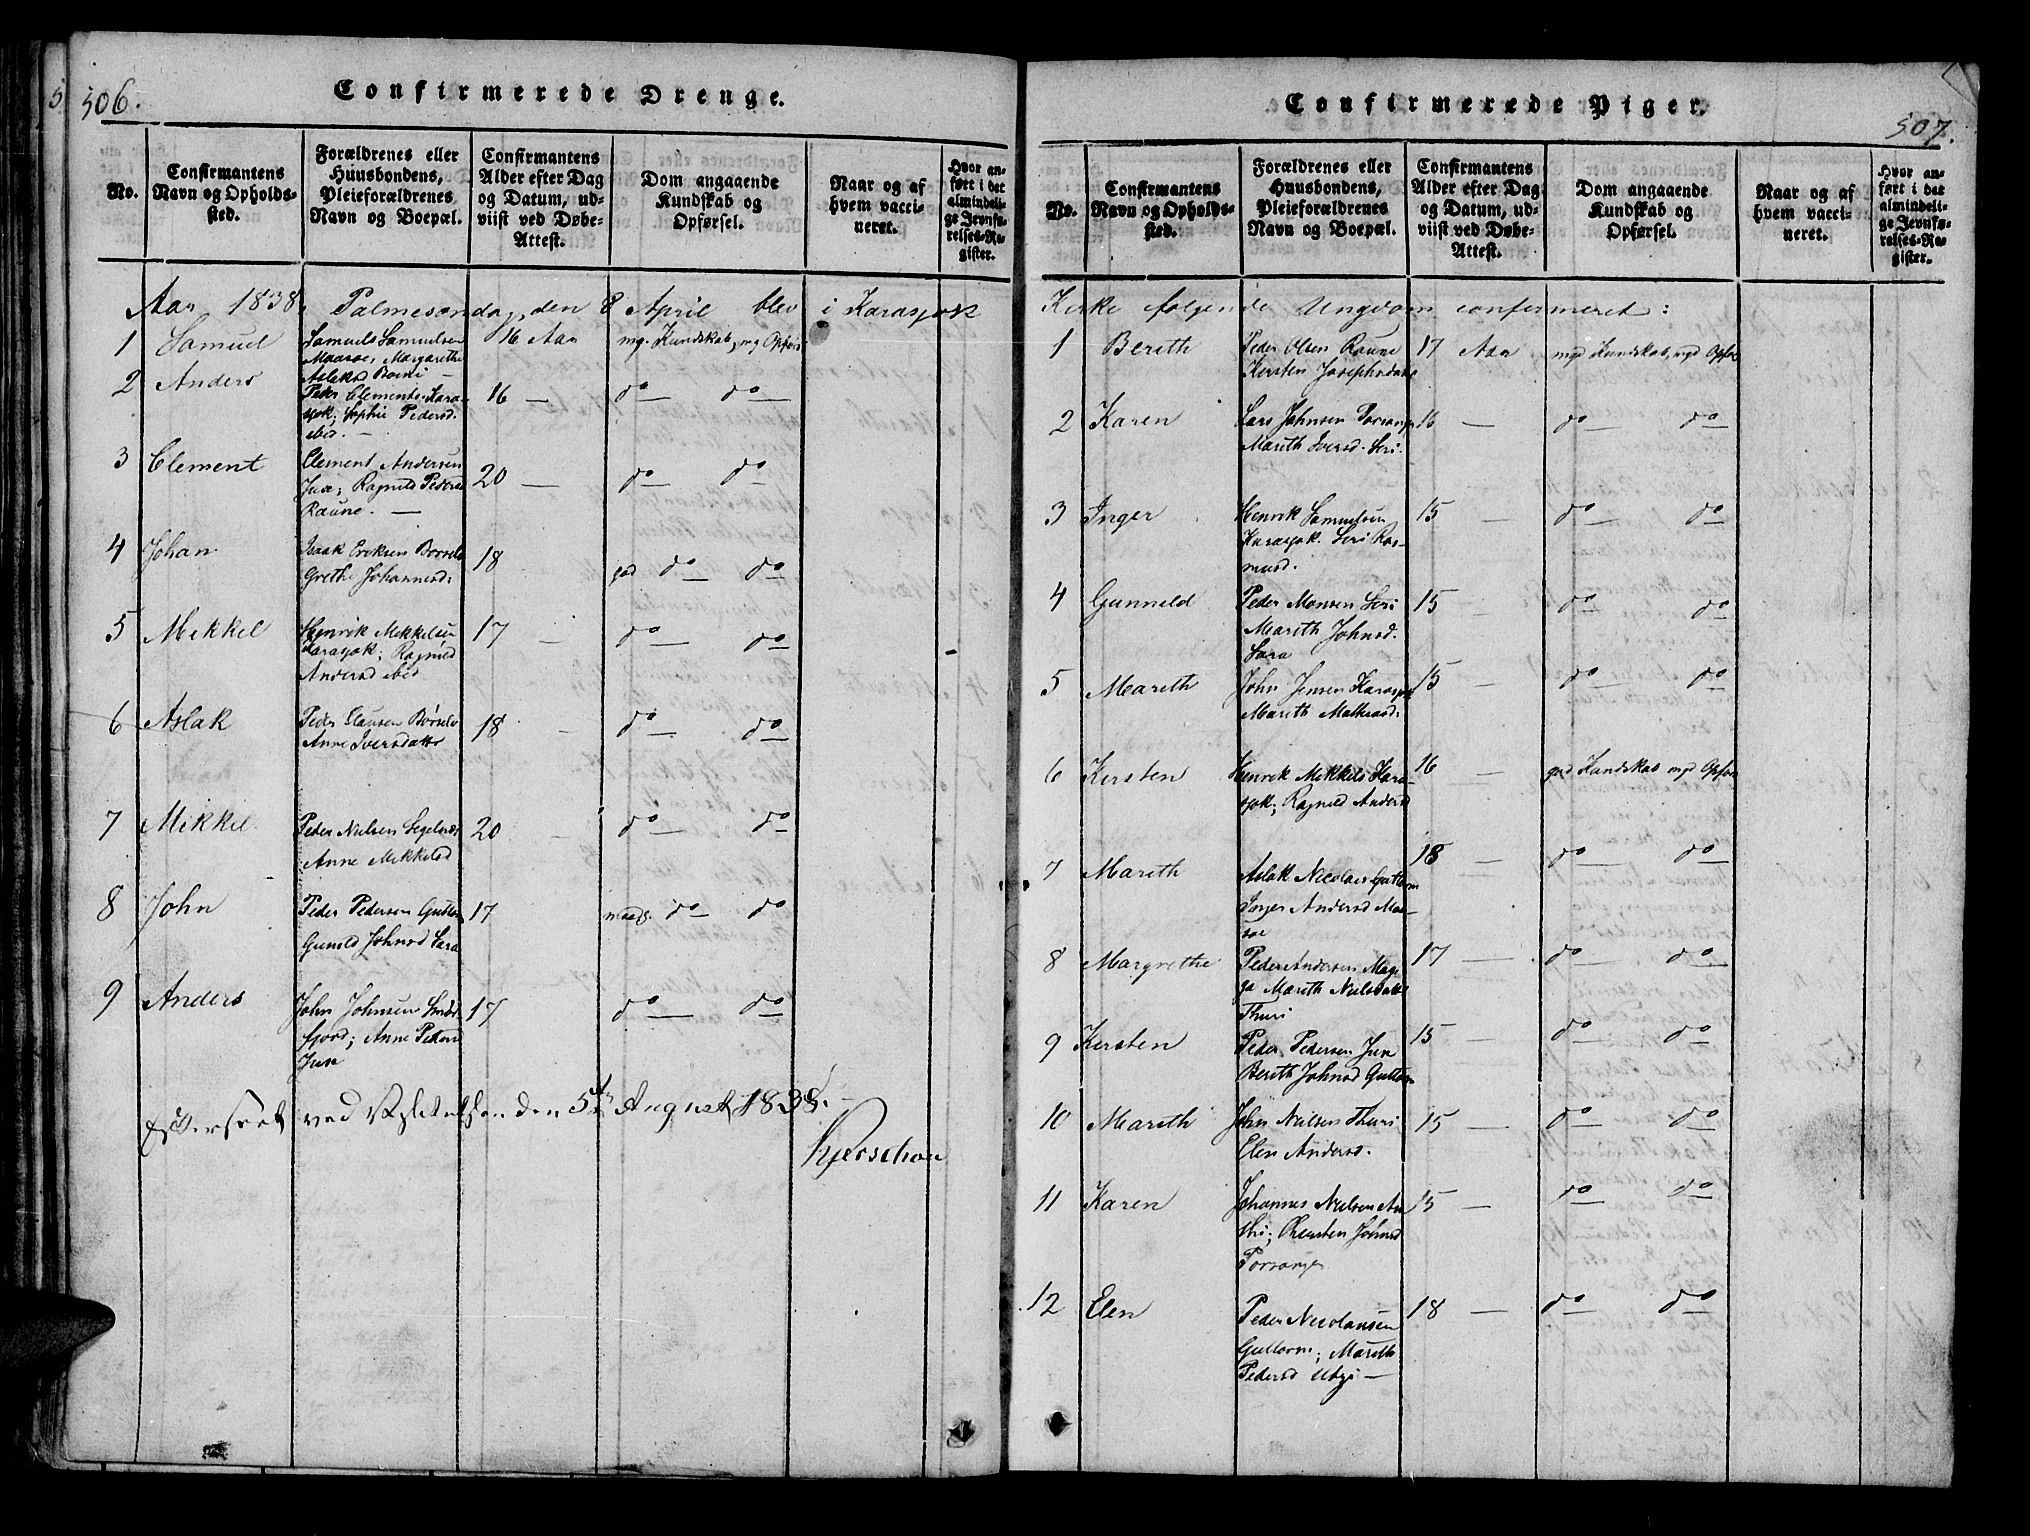 506.
Confirmerede Drenge.
No.
Confirmantens Navn og Opholdssted.
Forældrenes eller Huusbondens, Pleieforældrenes Navn og Boepæl.
Confirmantens Alder efter Dag og Datum, udviist ved Døbe-Attest.
Dom angaaende Kundskab og Opførsel.
Naar og af hvem vaccineret.
Hvor anført i det almindelige Jevnførelses-Register.
Aar 1838, Palmesondag, den 8 April blev i Karasjok
1 Samuel
Samuels Samuelsen
Maasøe, Margarethe
Aslaksd Boini —
16 Aar
mg. Kundskab, mg Opførs
2 Anders
Peder Clements. Kara-
sjok; Sophie Pedersd.
ibid. —
16 —
do do
3 Clement
Clement Andersen
Juse; Ragnild Pedersd
Raune. —
20 —
do do
4 Johan
Isaak Eriksen Børselv
Grethe Johannesd:
18
god do do
5 Mikkel
Henrik Mikkelsen
Karasjok; Ragnild
Andersd ibid
17 —
do do
6 Aslak
Peder Clausen Børselv
Anne Iversdatter
18 —
do do
7 Mikkel
Peder Nielsen
Anne Mikkelsd
20 —
do do
8 John
Peder Pedersen Guttorm
Gunild Johnsd Sara
17
maadl. do do
9 Anders
John Johnsen Smør-
fjord; Anne Peders
Juse
17
do do
Efterseet ved Visitatsen den 5te August 1838. —
Kjerschow
507.
Confirmerede Piger.
No.
Confirmantens Navn og Opholdssted.
Forældrenes eller Huusbondens, Pleieforældrenes Navn og Boepæl.
Confirmantens Alder efter Dag og Datum, udviist ved Døbe-Attest.
Dom angaaende Kundskab og Opførsel.
Naar og af hvem vaccineret.
Hvor anført i det almindelige Jevnførelses-Register.
Kirke følgende Ungdom confirmeret:
1 Berith
Peder Olsen Raune
Kersten Josephsdatt
17 Aar
mgd Kundskab, mgd Opfør
2 Karen
Lars Johnsen Porsanger
Marith Iversd. Siri.
16 —
do do
3 Inger
Henrik Samuelsen
Karasjok. Siri Ras-
musd.
15 —
do do
4 Gunnild
Peder Monsen Siri
Marith Johnsd.
Sara
15 —
do do
5 Marith
John Jensen Karasjok
Marith Mathisd:
15 —
do do
6 Kersten
Henrik Mikkels Kara-
sjok; Ragnild Andersd
16 —
god Kundskab mgd Opfør
7 Marith
Aslak Nicolai Guttorm
Inger Andersd Maa-
søe
18 —
do do
8 Margrethe
Peder Andersen Mag-
ga Marith Nielsdatt
Thuri
17 —
do do
9 Kersten
Peder Pedersen Juse
Berith Johnsd Guttorm
15 —
do do
10 Marith
John Nielsen Thuri
Elen Andersd.
15 —
do do
11 Karen
Johannes Nielsen An-
thi; Chersten Johnsd
Porsanger
15 —
do do
12 Elen
Peder Nicolaisen
Guttorm; Marith
Pedersd Utzi —
18 —
do do